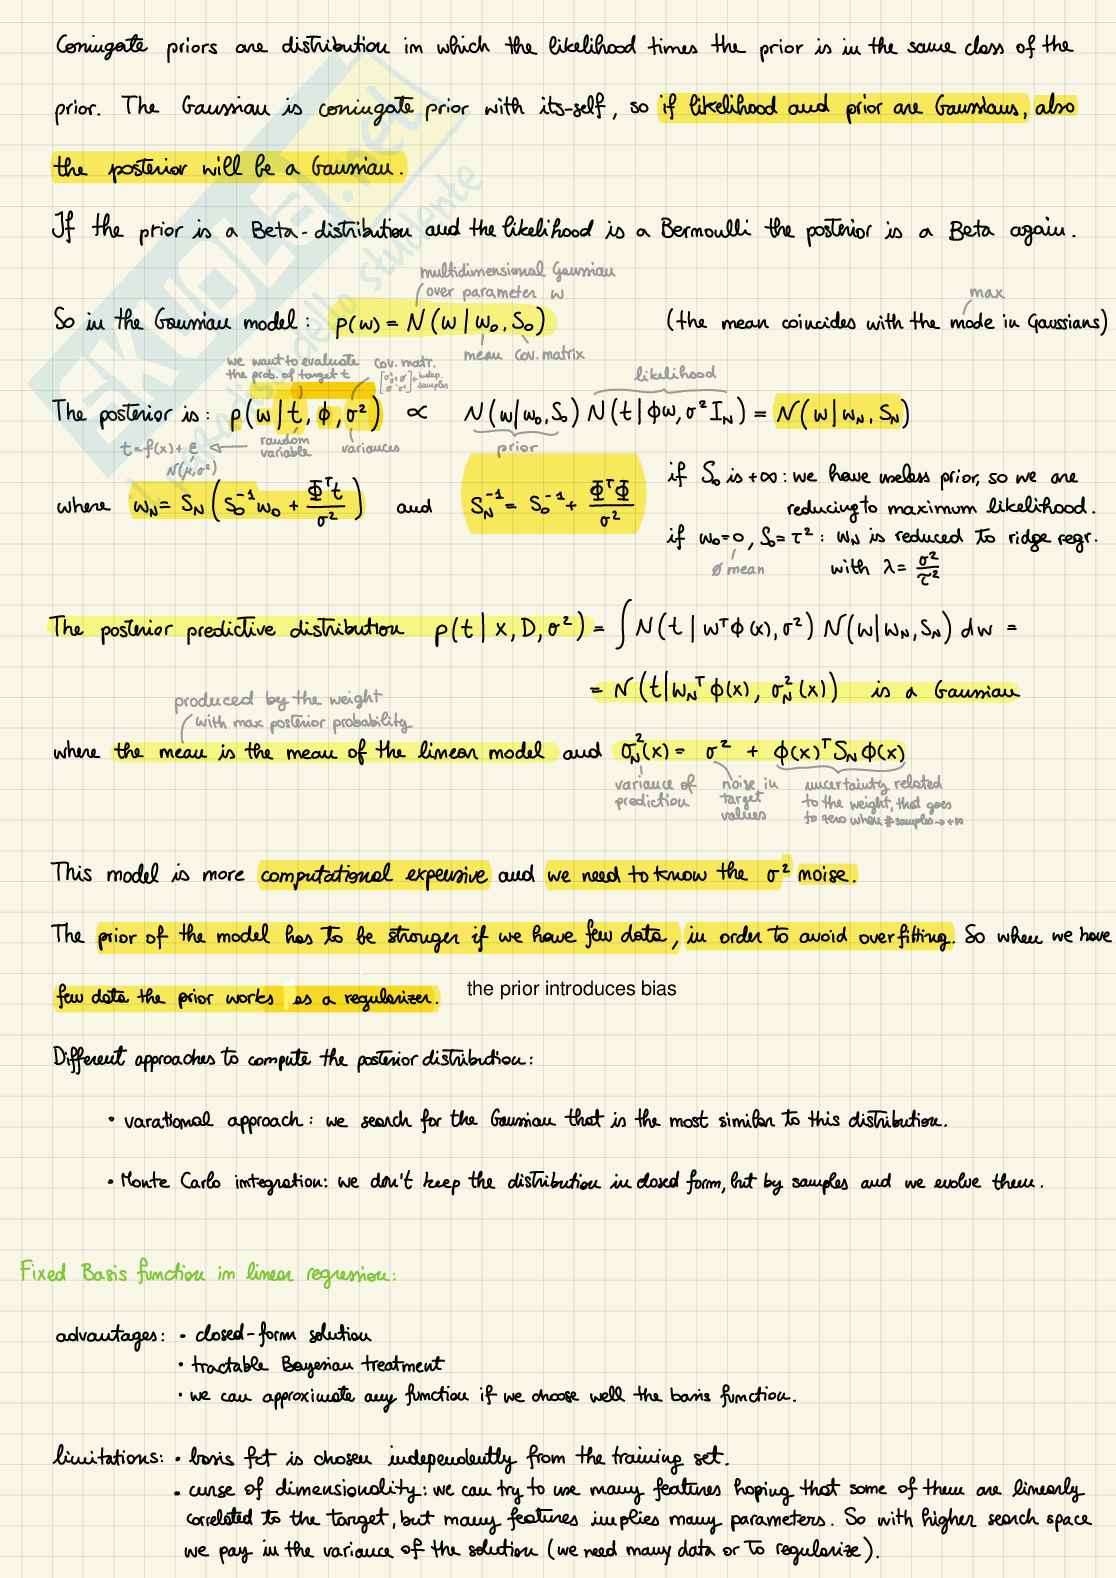 Coniugate priors are distribution in which the likelihood times the prior is in the same class of the
prior. The Gaussian is coniugate prior with its-self, so if likelihood and prior are Gaussians, also
the posterior will be a Gaussian.
If the prior is a Beta-distribution and the likelihood is a Bernoulli the posterior is a Beta again.
multidimensional Gaussian
over parameter w
max
So in the Gaussian model: p(w) = N(w|w₀, S₀) (the mean coincides with the mode in Gaussians)
mean cov. matrix
we want to evaluate
the prob. of target t
cov. matr.
likelihood
The posterior is: p(w|t, ϕ, σ²) ∝ N(w|w₀, S₀) N(t|ϕw, σ² I_N) = N(w|w_N, S_N)
t = f(x) + ε
N(μ, σ²)
random
variable
variances
prior
where w_N = S_N (S₀⁻¹ w₀ + Φᵀt / σ²) and S_N⁻¹ = S₀⁻¹ + ΦᵀΦ / σ²
if S₀ is +∞: we have useless prior, so we are
reducing to maximum likelihood.
if w₀=0, S₀=τ²: w_N is reduced to ridge regr.
Ø mean
with λ = σ² / τ²
The posterior predictive distribution p(t|x, D, σ²) = ∫ N(t|wᵀϕ(x), σ²) N(w|w_N, S_N) dw =
= N(t|w_Nᵀ ϕ(x), σ_N²(x)) is a Gaussian
produced by the weight
with max posterior probability
where the mean is the mean of the linear model and σ_N²(x) = σ² + ϕ(x)ᵀ S_N ϕ(x)
variance of
prediction
noise in
target
values
uncertainty related
to the weight, that goes
to zero when # samples → +∞
This model is more computational expensive and we need to know the σ² noise.
The prior of the model has to be stronger if we have few data, in order to avoid overfitting. So when we have
few data the prior works as a regularizer. the prior introduces bias
Different approaches to compute the posterior distribution:
• varational approach: we search for the Gaussian that is the most similar to this distribution.
• Monte Carlo integration: we don't keep the distribution in closed form, but by samples and we evolve them.
Fixed Basis function in linear regression:
advantages: • closed-form solution
• tractable Bayesian treatment
• we can approximate any function if we choose well the basis function.
limitations: • basis fct is chosen independently from the training set.
• curse of dimensionality: we can try to use many features hoping that some of them are linearly
correlated to the target, but many features implies many parameters. So with higher search space
we pay in the variance of the solution (we need many data or to regularize).